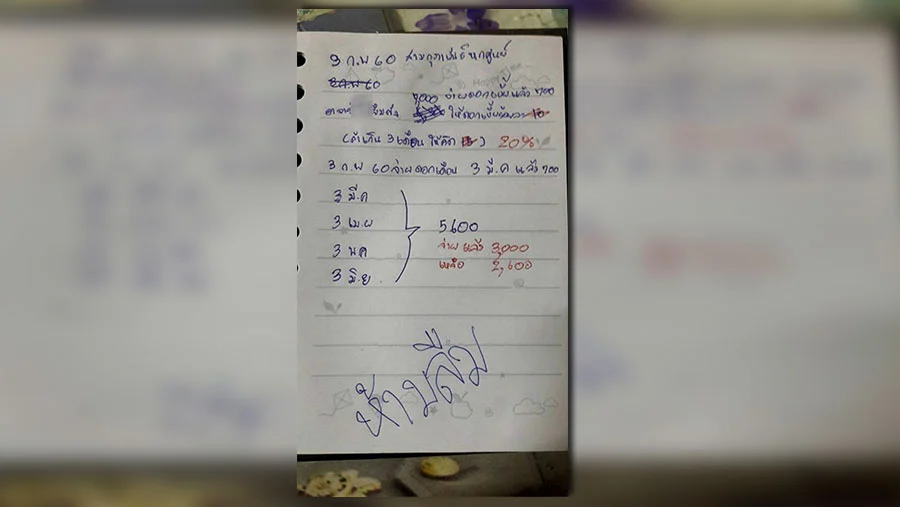 3 ก.พ 60 สามกุมภาพันธ์ หกศูนย์
7,000 จ่ายดอกเบี้ยแล้ว 700
ยืมเงิน ให้ดอกเบี้ยร้อยละ 10
(ถ้าเกิน 3 เดือน ให้คิด ) 20%
3 ก.พ 60 จ่ายดอกเดือน 3 มี.ค แล้ว 700
3 มี.ค
3 เม.ย
3 พ.ค
3 มิ.ย
5600
จ่ายแล้ว 3,000
เหลือ 2,600
ห้ามลืม